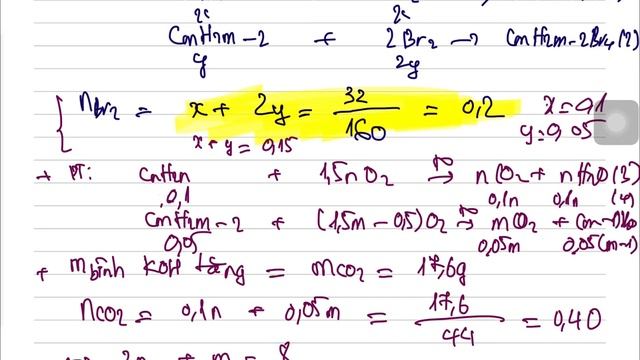 2x 2x
CmH2m-2 + 2Br2 → CmH2m-2Br4 (2)
y 2y
nBr2 = x + 2y = 32/160 = 0,2 x = 0,1
x + y = 0,15 y = 0,05
+ PT: CnH2n + 1,5nO2 →(t°) nCO2 + nH2O (3)
0,1 0,1n 0,1n (4)
CmH2m-2 + (1,5m-0,5)O2 →(t°) mCO2 + (m-1)H2O
0,05 0,05m 0,05(m-1)
+ mbình KOH tăng = mCO2 = 17,6g
nCO2 = 0,1n + 0,05m = 17,6/44 = 0,40
2n + m = 8